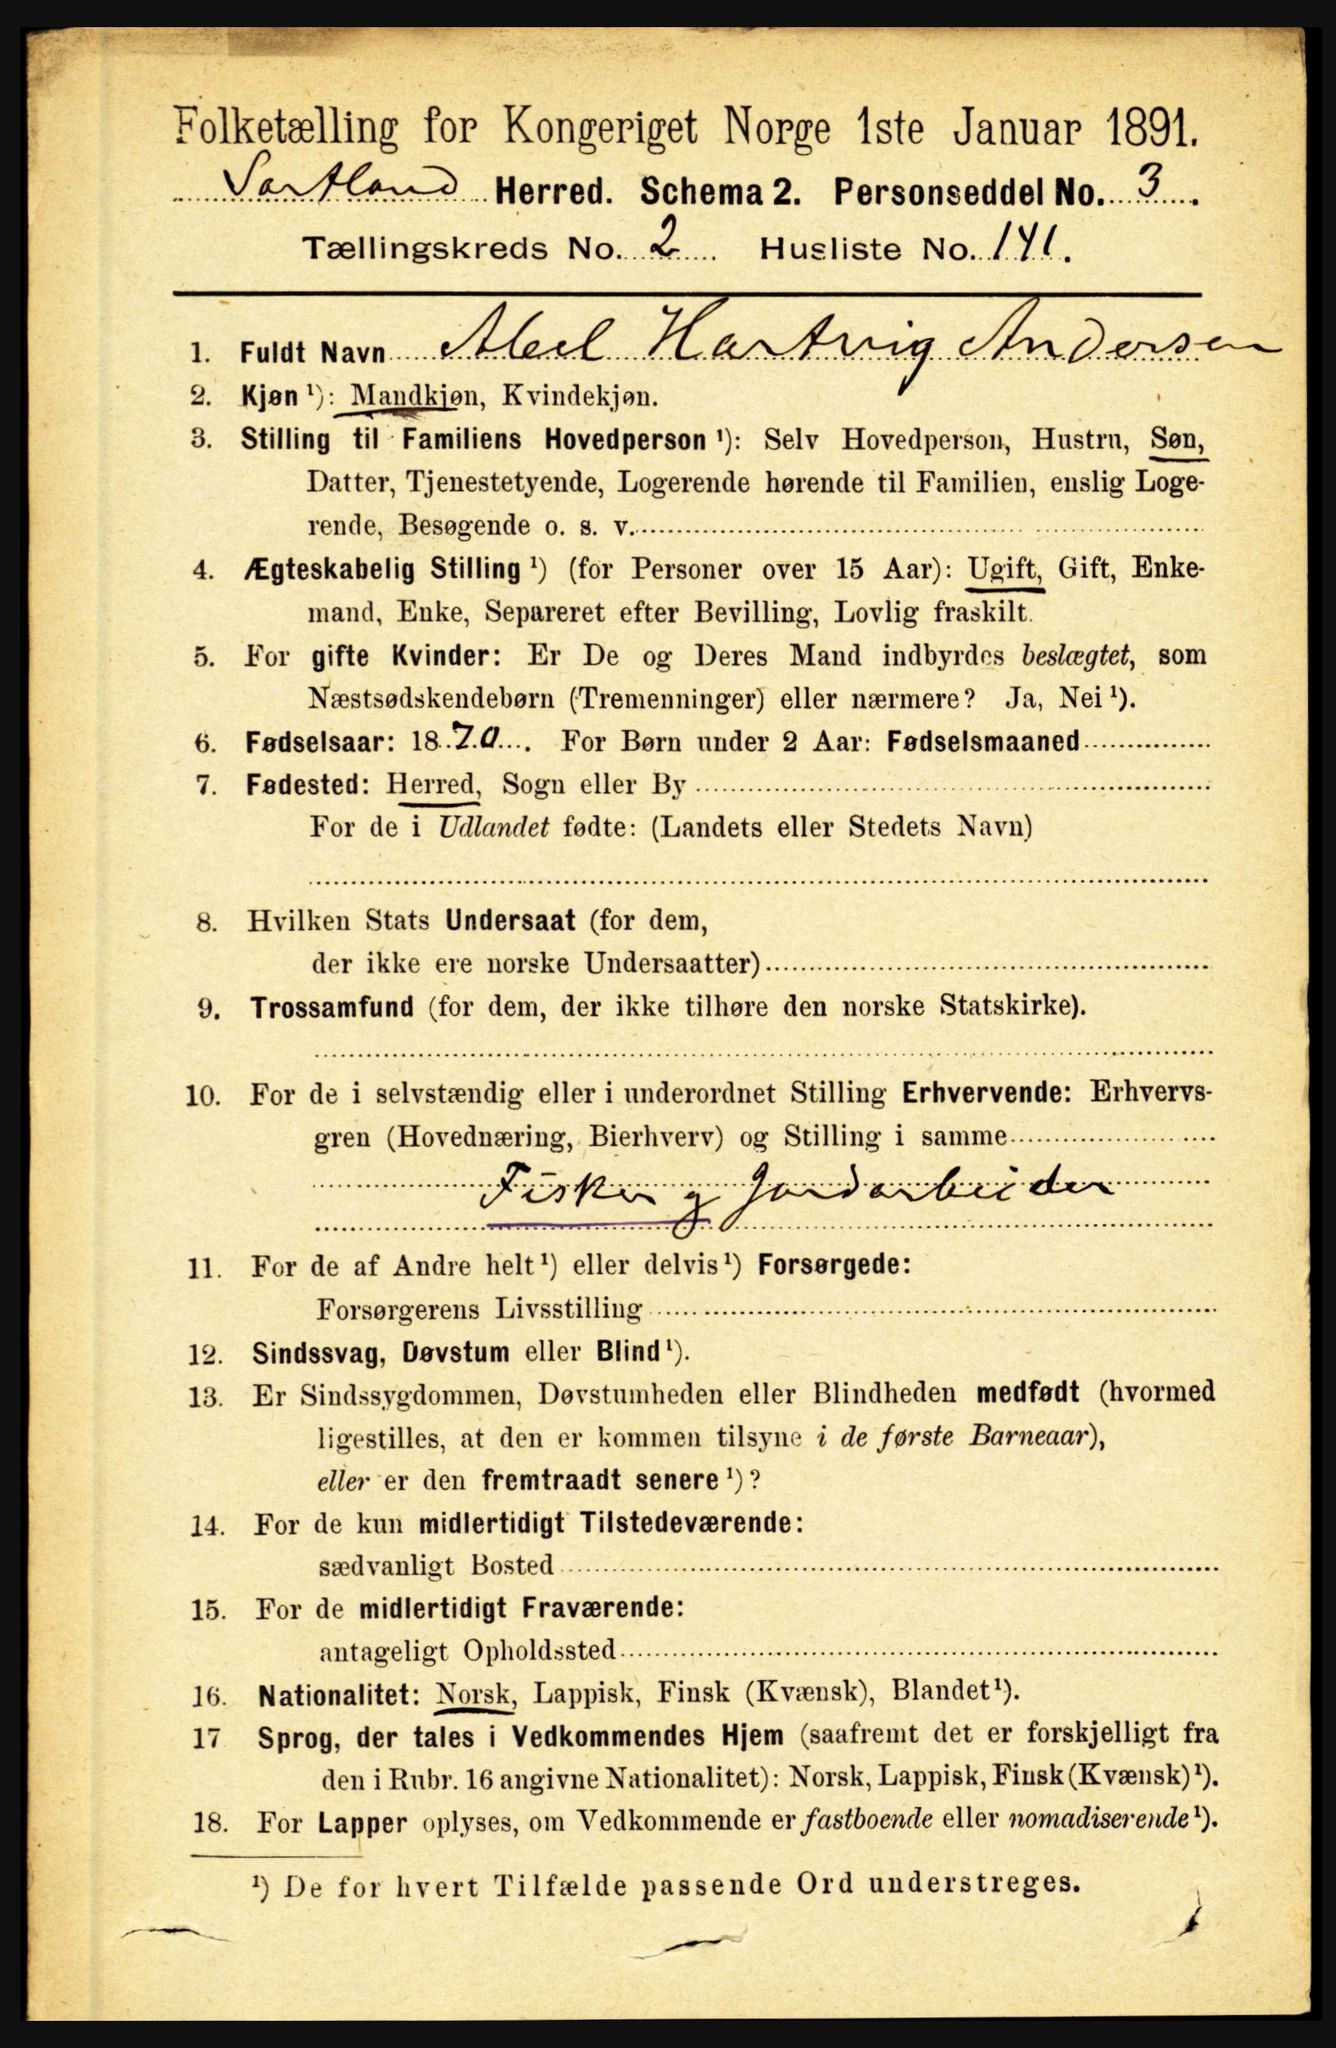 Folketælling for Kongeriget Norge 1ste Januar 1891.
Sortland Herred. Schema 2. Personseddel No. 3.
Tællingskreds No. 2. Husliste No. 141.
1. Fuldt Navn Abel Hartvig Andersen
2. Kjøn ¹): Mandkjøn, Kvindekjøn.
3. Stilling til Familiens Hovedperson ¹): Selv Hovedperson, Hustru, Søn,
Datter, Tjenestetyende, Logerende hørende til Familien, enslig Loge-
rende, Besøgende o. s. v.
4. Ægteskabelig Stilling ¹) (for Personer over 15 Aar): Ugift, Gift, Enke-
mand, Enke, Separeret efter Bevilling, Lovlig fraskilt.
5. For gifte Kvinder: Er De og Deres Mand indbyrdes beslægtet, som
Næstsødskendebørn (Tremenninger) eller nærmere? Ja, Nei ¹).
6. Fødselsaar: 1870. For Børn under 2 Aar: Fødselsmaaned
7. Fødested: Herred, Sogn eller By
For de i Udlandet fødte: (Landets eller Stedets Navn)
8. Hvilken Stats Undersaat (for dem,
der ikke ere norske Undersaatter)
9. Trossamfund (for dem, der ikke tilhøre den norske Statskirke).
10. For de i selvstændig eller i underordnet Stilling Erhvervende: Erhvervs-
gren (Hovednæring, Bierhverv) og Stilling i samme
Fisker og Jordarbeider
11. For de af Andre helt ¹) eller delvis ¹) Forsørgede:
Forsørgerens Livsstilling
12. Sindssvag, Døvstum eller Blind ¹).
13. Er Sindssygdommen, Døvstumheden eller Blindheden medfødt (hvormed
ligestilles, at den er kommen tilsyne i de første Barneaar),
eller er den fremtraadt senere ¹)?
14. For de kun midlertidigt Tilstedeværende:
sædvanligt Bosted
15. For de midlertidigt Fraværende:
antageligt Opholdssted
16. Nationalitet: Norsk, Lappisk, Finsk (Kvænsk), Blandet ¹).
17 Sprog, der tales i Vedkommendes Hjem (saafremt det er forskjelligt fra
den i Rubr. 16 angivne Nationalitet): Norsk, Lappisk, Finsk (Kvænsk) ¹).
18. For Lapper oplyses, om Vedkommende er fastboende eller nomadiserende ¹).
¹) De for hvert Tilfælde passende Ord understreges.